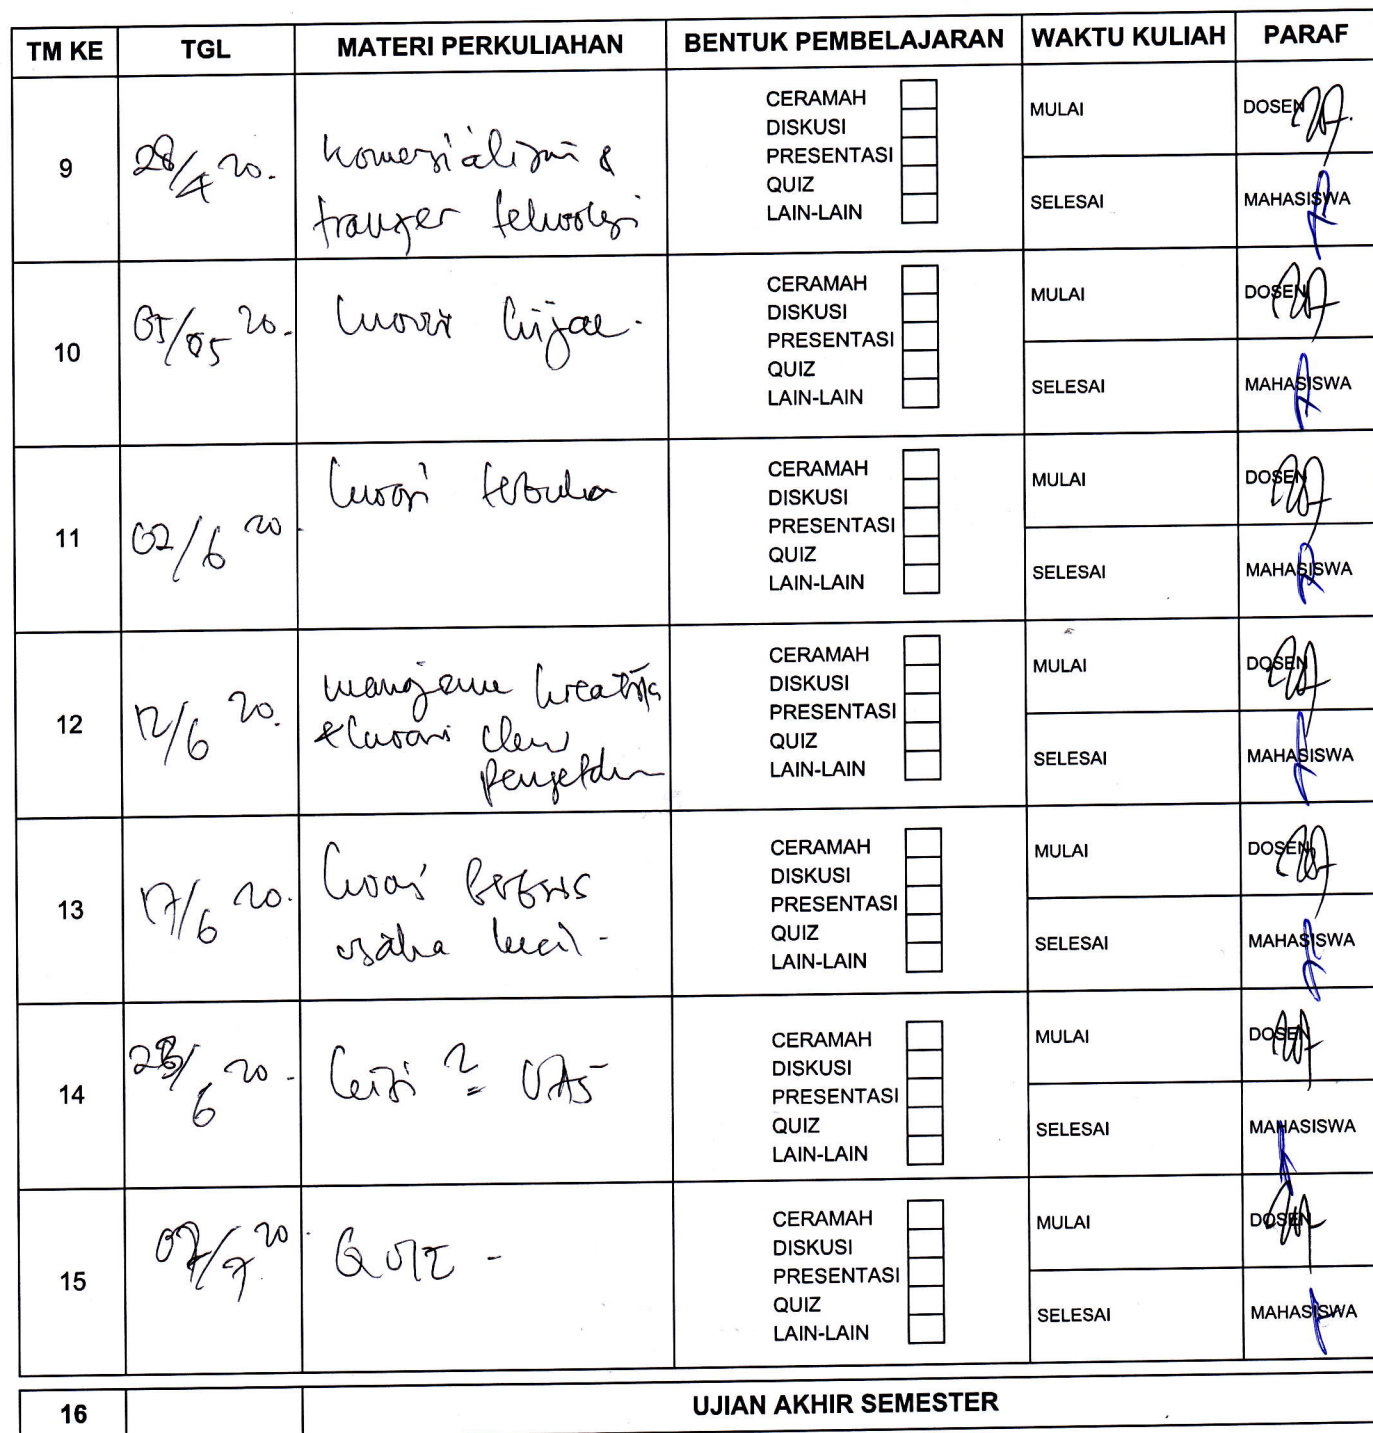 TM KE TGL MATERI PERKULIAHAN BENTUK PEMBELAJARAN WAKTU KULIAH PARAF
9 28/4 20. komersialisasi & transfer teknologi
CERAMAH
DISKUSI
PRESENTASI
QUIZ
LAIN-LAIN
MULAI
SELESAI
DOSEN
MAHASISWA
10 05/05 20. Inovasi hijau.
CERAMAH
DISKUSI
PRESENTASI
QUIZ
LAIN-LAIN
MULAI
SELESAI
DOSEN
MAHASISWA
11 02/6 20. Inovasi terbuka
CERAMAH
DISKUSI
PRESENTASI
QUIZ
LAIN-LAIN
MULAI
SELESAI
DOSEN
MAHASISWA
12 12/6 20. & Inovasi
CERAMAH
DISKUSI
PRESENTASI
QUIZ
LAIN-LAIN
MULAI
SELESAI
DOSEN
MAHASISWA
13 17/6 20. Inovasi
usaha kecil -
CERAMAH
DISKUSI
PRESENTASI
QUIZ
LAIN-LAIN
MULAI
SELESAI
DOSEN
MAHASISWA
14 6 20 - UAS
CERAMAH
DISKUSI
PRESENTASI
QUIZ
LAIN-LAIN
MULAI
SELESAI
DOSEN
MAHASISWA
15 07/7 20. QUIZ -
CERAMAH
DISKUSI
PRESENTASI
QUIZ
LAIN-LAIN
MULAI
SELESAI
DOSEN
MAHASISWA
16 UJIAN AKHIR SEMESTER